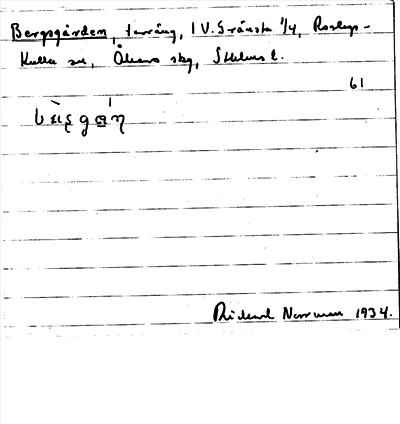 Bergsgården, terräng, 1 V. Gränsta 1/4, Roslags-
Kulla sn, Åkers skg, Sthlms l.
61
Richard Norrman 1934.